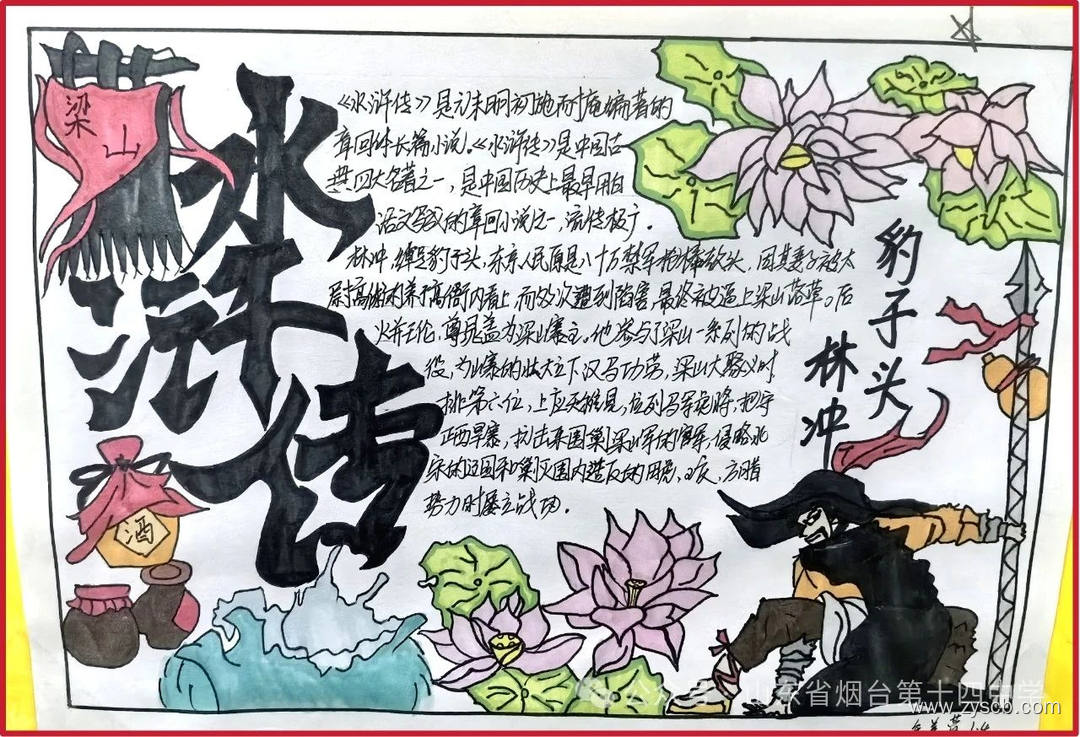 梁山
水浒传
《水浒传》是元末明初施耐庵编著的
章回体长篇小说。《水浒传》是中国古
典四大名著之一，是中国历史上最早用白
话文写成的章回小说之一，流传极广。
林冲，绰号豹子头，东京人氏，原是八十万禁军枪棒教头，因其妻子被太
尉高俅的养子高衙内看上，而多次遭到陷害，最终被逼上梁山落草。后
火并王伦，尊晁盖为梁山寨主。他参与了梁山一系列的战
役，为山寨的壮大立下汉马功劳，梁山大聚义时
排第六位，上应天雄星，位列马军五虎将，把守
正西旱寨，抗击
宋的辽国和
势力时屡立战功。
豹子头
林冲
酒
公众号·山东省烟台第十四中学
www.zyscb.com